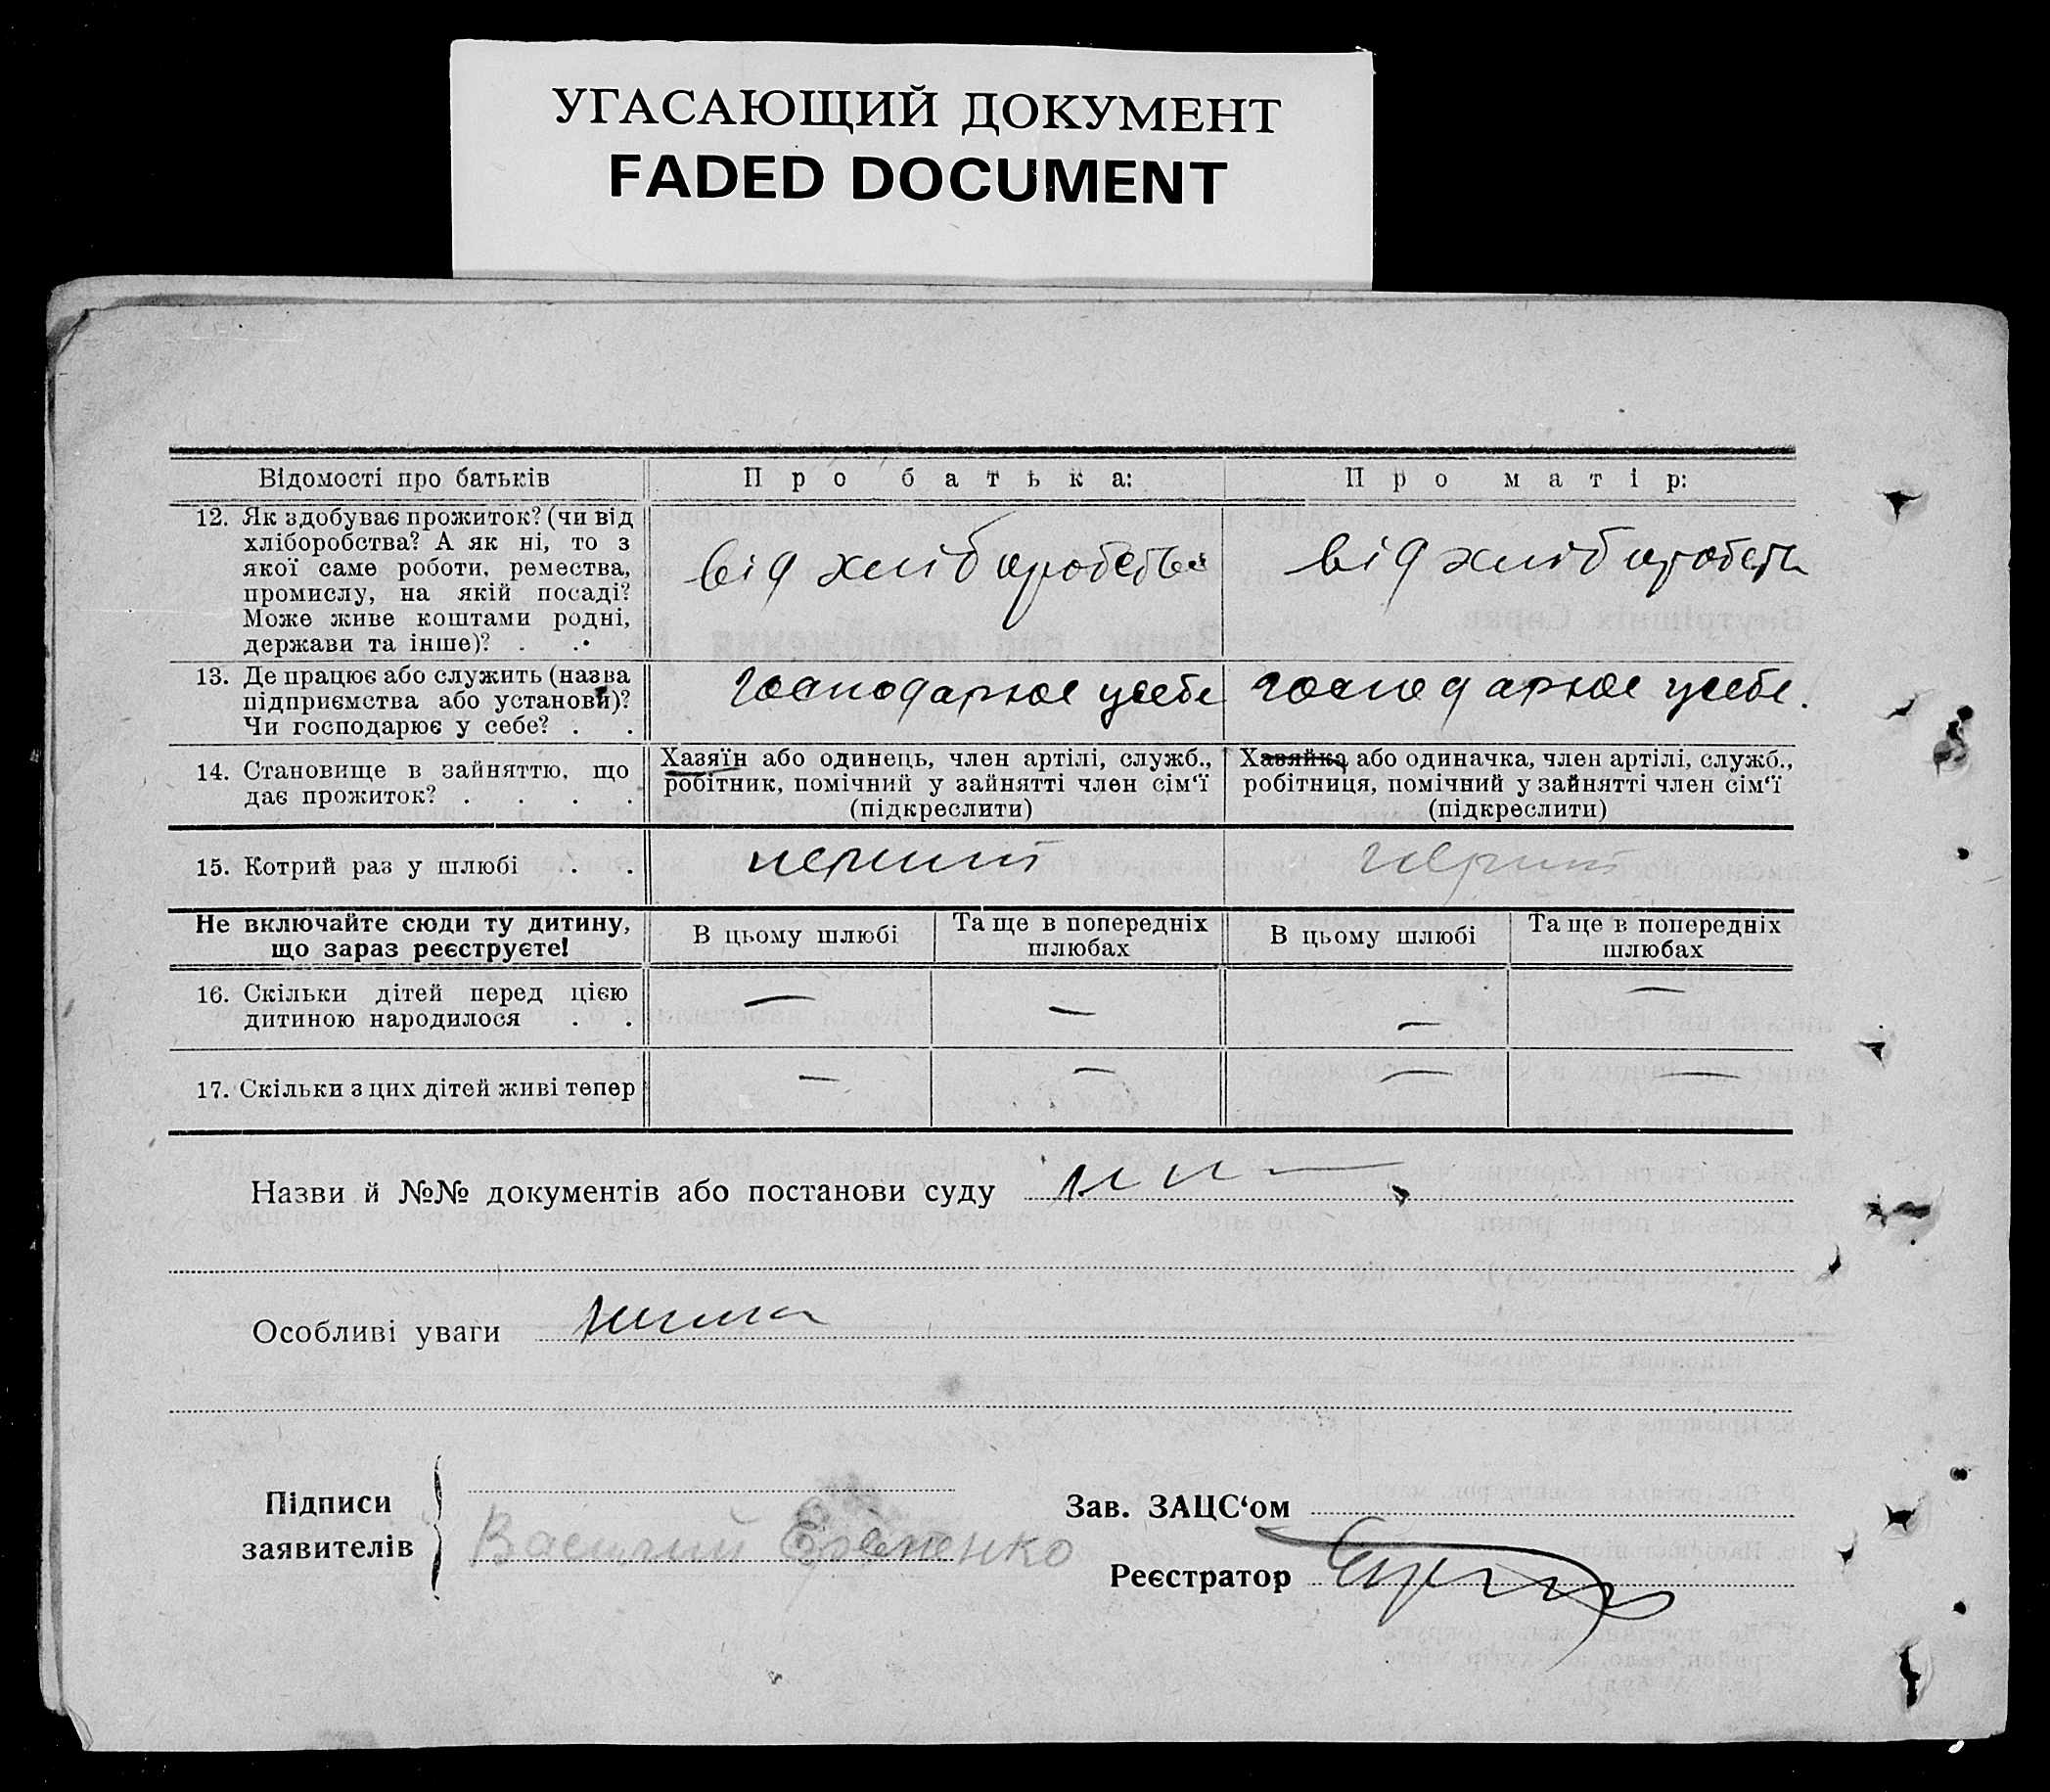 УГАСАЮЩИЙ ДОКУМЕНТ
FADED DOCUMENT
Відомості про батьків
Про батька:
Про матір:
12. Як здобуває прожиток? (чи від
хліборобства? А як ні, то з
якої саме роботи, ремества,
промислу, на якій посаді?
Може живе коштами родні,
держави та інше)? . .
від хліборобства
від хліборобств
13. Де працює або служить (назва
підприємства або установи)?
Чи господарює у себе? . .
господарює усебе
господарює усебе.
14. Становище в зайняттю, що
дає прожиток? . . . .
Хазяїн або одинець, член артілі, служб.,
робітник, помічний у зайнятті член сім‘ї
(підкреслити)
Хазяйка або одиначка, член артілі, служб.,
робітниця, помічний у зайнятті член сім‘ї
(підкреслити)
15. Котрий раз у шлюбі . .
перший
перший
Не включайте сюди ту дитину,
що зараз реєструєте!
В цьому шлюбі
Та ще в попередніх
шлюбах
В цьому шлюбі
Та ще в попередніх
шлюбах
16. Скільки дітей перед цією
дитиною народилося . .
—
—
—
—
17. Скільки з цих дітей живі тепер
—
—
—
—
Назви й №№ документів або постанови суду
Особливі уваги нима
Підписи
заявителів
Василий
Зав. ЗАЦС‘ом
Реєстратор